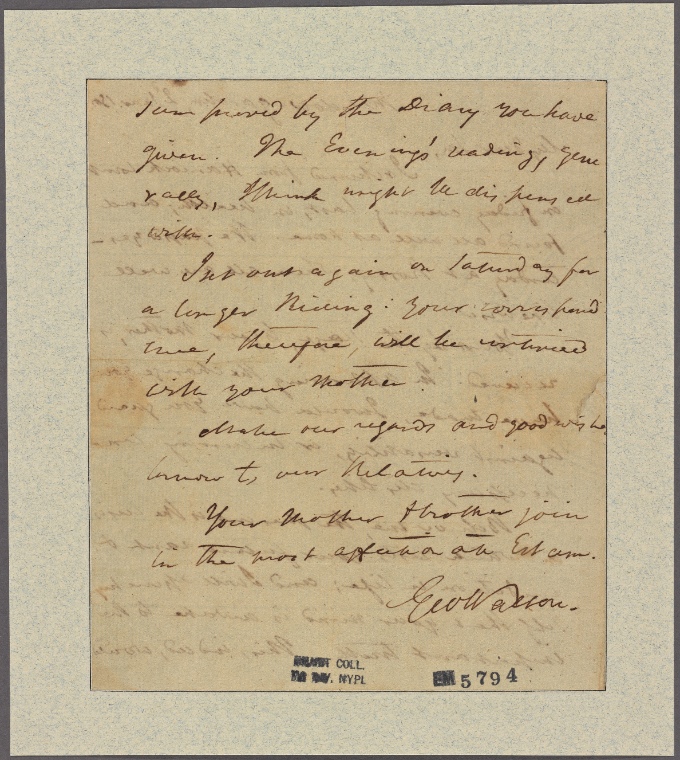 proved by the Diary you have
given. The Evening's reading, gene
rally, I think might be dispensed
with.
I set out again on Saturday for
a longer Riding: your correspond
ence, therefore, will be continued
with your Mother.
Make our regards and good wishes
known to our Relatives.
Your Mother & brother join
in the most affectionate Esteem.
Geo Walton.
EMMET COLL.
NYPL
EM 5794